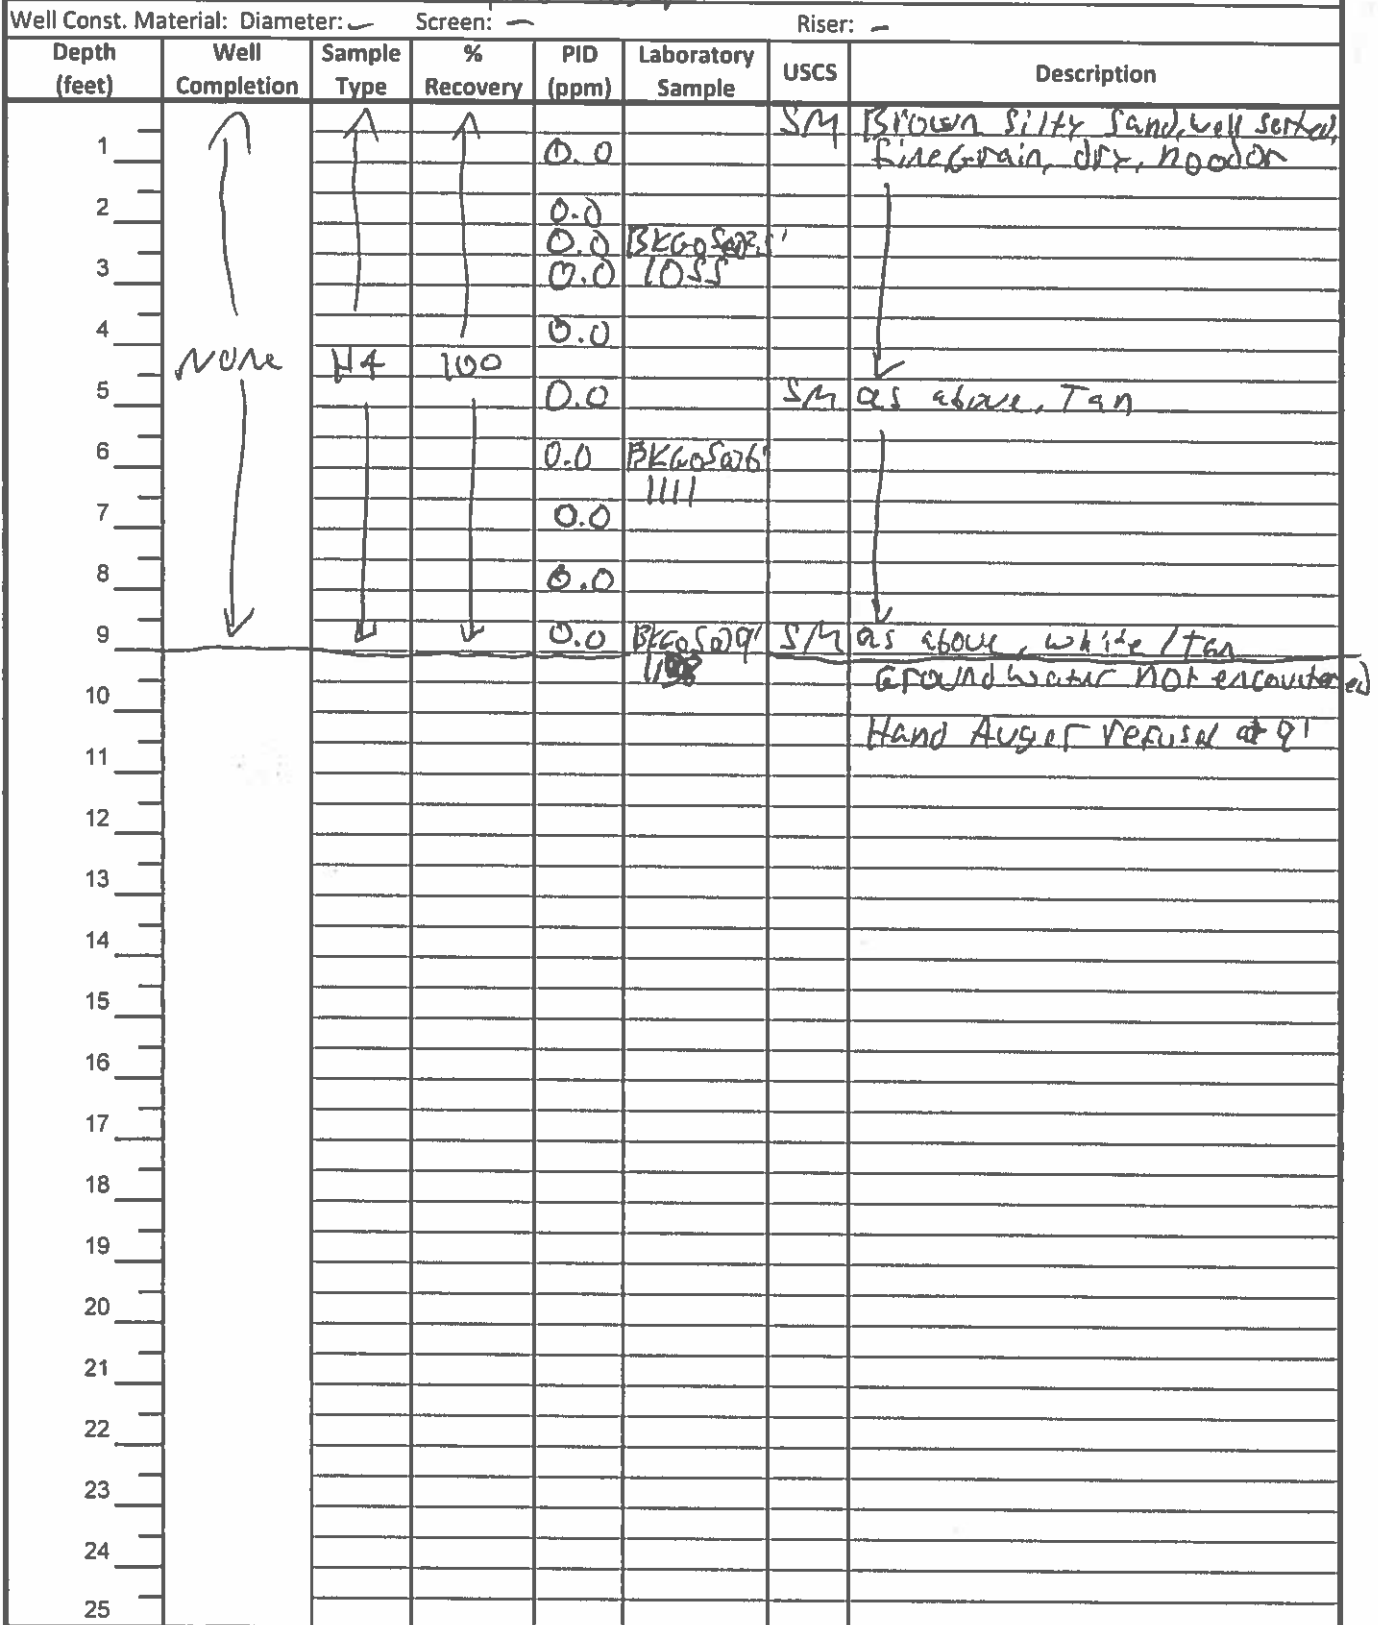 Well Const. Material: Diameter: — Screen: — Riser: —
Depth (feet) Well Completion Sample Type % Recovery PID (ppm) Laboratory Sample USCS Description
SM Brown silty sand, well sorted,
1 0.0 fine grain, dry, no odor
2 0.0
0.0
3 0.0 1055
4 0.0
None 100
5 0.0 SM as above, Tan
6 0.0
1111
7 0.0
8 0.0
9 0.0 SM as above, white / tan
10 Groundwater not encountered
Hand Auger refusal at 9'
11
12
13
14
15
16
17
18
19
20
21
22
23
24
25